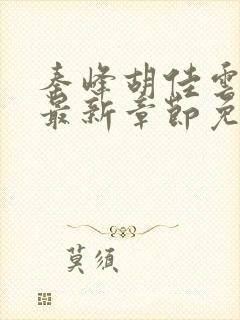 秦峰胡佳雲
最新章節免
莫須